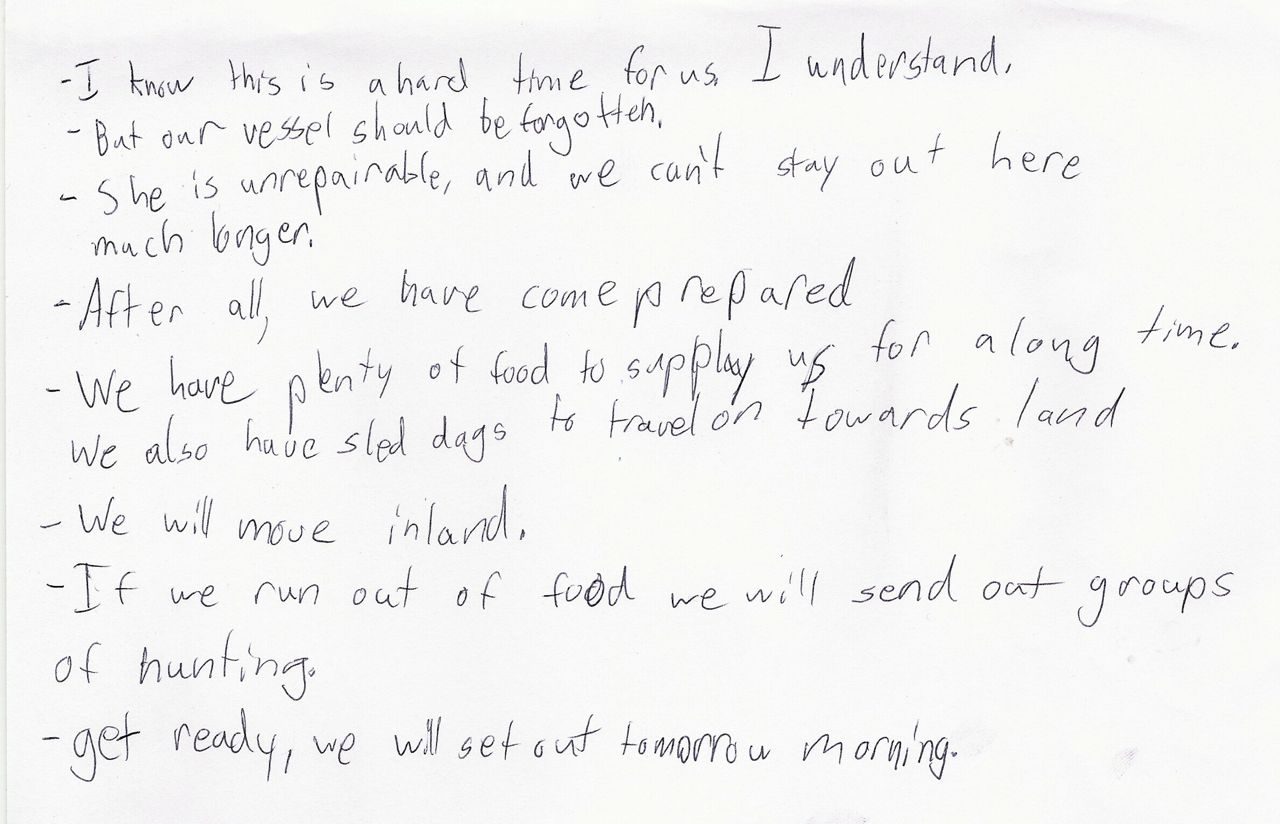 -I know this is a hard time for us. I understand.
- But our vessel should be forgotten.
- She is unrepairable, and we can't stay out here
much longer.
- After all, we have come prepared
- We have plenty of food to supplay us for a long time.
We also have sled dags to travel on towards land
- We will move inland.
- If we run out of food we will send out groups
of hunting.
- get ready, we will set out tomorrow morning.